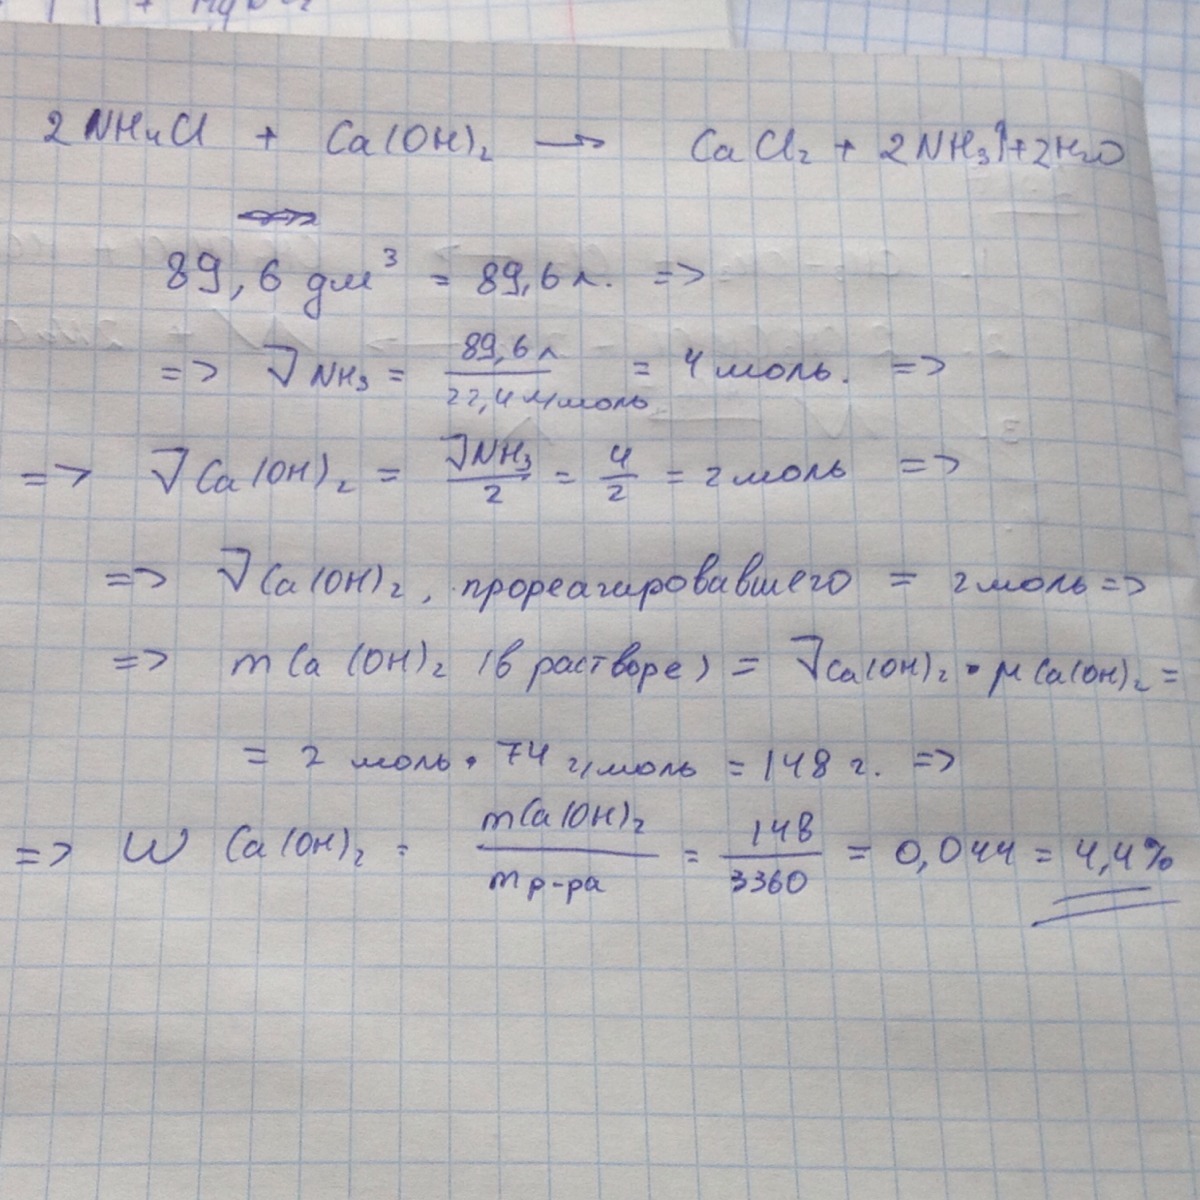 2NH4Cl + Ca(OH)₂ → CaCl₂ + 2NH₃↑ + 2H₂O
89,6 дм³ = 89,6 л. =>
=> ν NH₃ = 89,6 л / 22,4 л/моль = 4 моль. =>
=> ν Ca(OH)₂ = νNH₃ / 2 = 4/2 = 2 моль =>
=> ν Ca(OH)₂, прореагировавшего = 2 моль =>
=> m Ca(OH)₂ (в растворе) = ν Ca(OH)₂ · μ Ca(OH)₂ =
= 2 моль · 74 г/моль = 148 г. =>
=> W Ca(OH)₂ = mCa(OH)₂ / m р-ра = 148 / 3360 = 0,044 = 4,4%